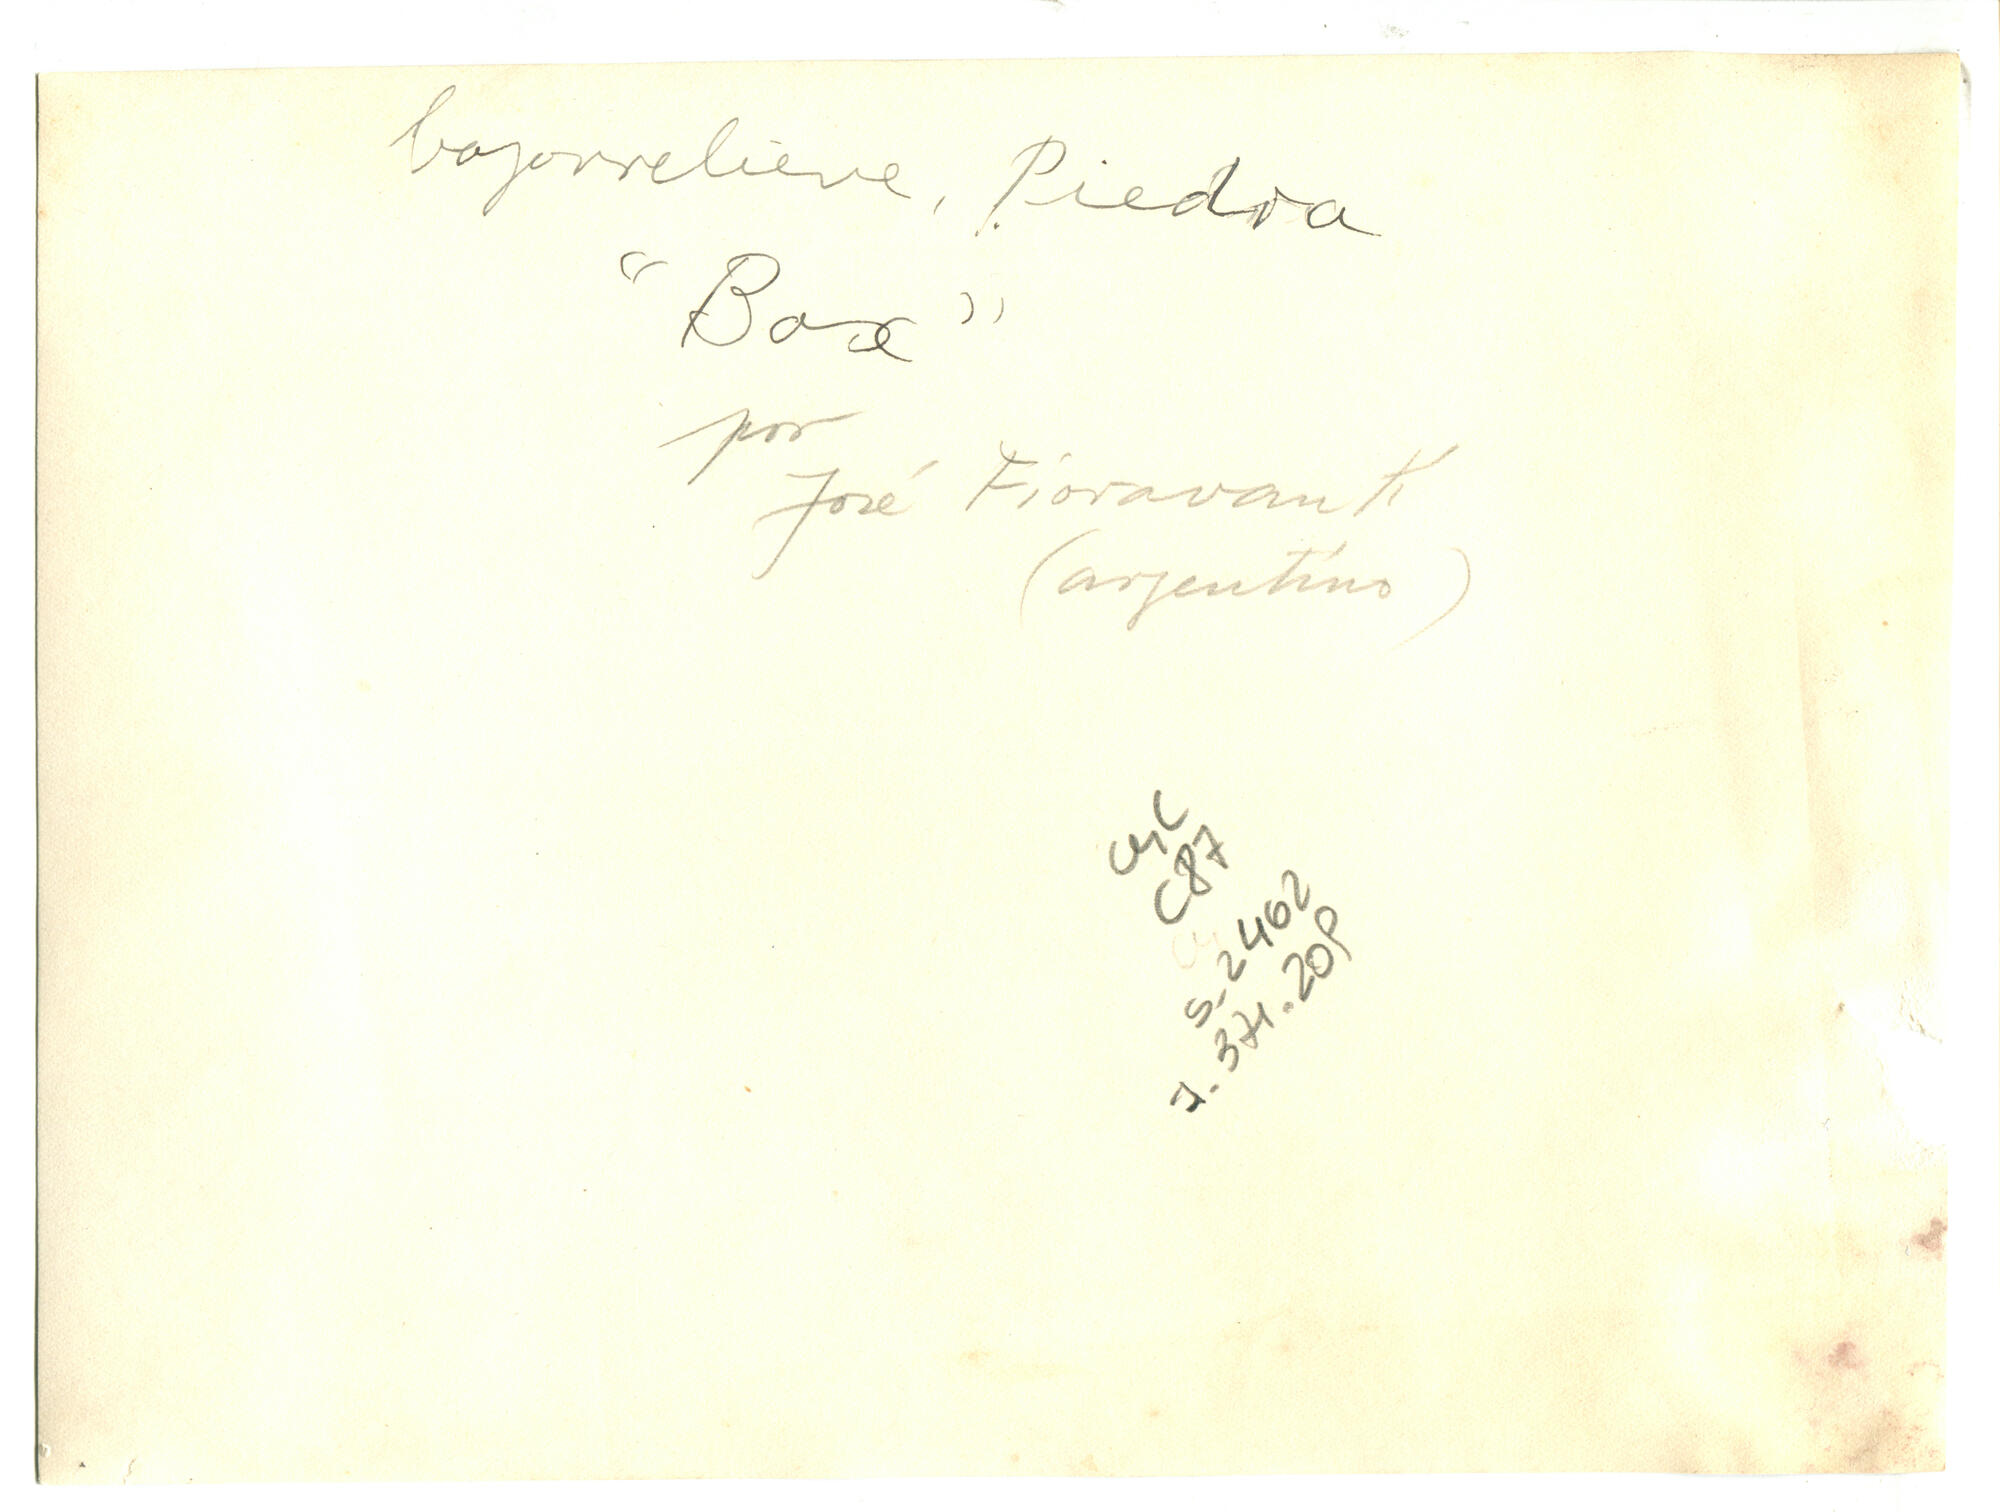 bajorrelieve, Piedra
"Box"
por
José Fioravanti
(argentino)
C87
S-2462